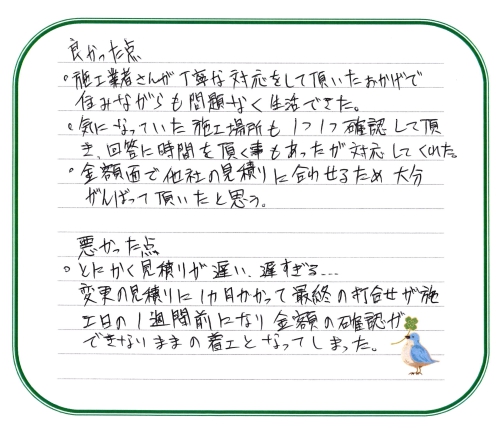 良かった点
。施工業者さんが丁寧な対応をして頂いたおかげで
住みながらも問題なく生活できた。
。気になっていた施工場所も1つ1つ確認して頂
き、回答に時間を頂く事もあったが対応してくれた。
。金額面で他社の見積りに合わせるため大分
がんばって頂いたと思う。
悪かった点
。とにかく見積りが遅い、遅すぎる...
変更の見積りに1カ月かかって最終の打合せが施
工日の1週間前になり金額の確認が
できないままの着工となってしまった。